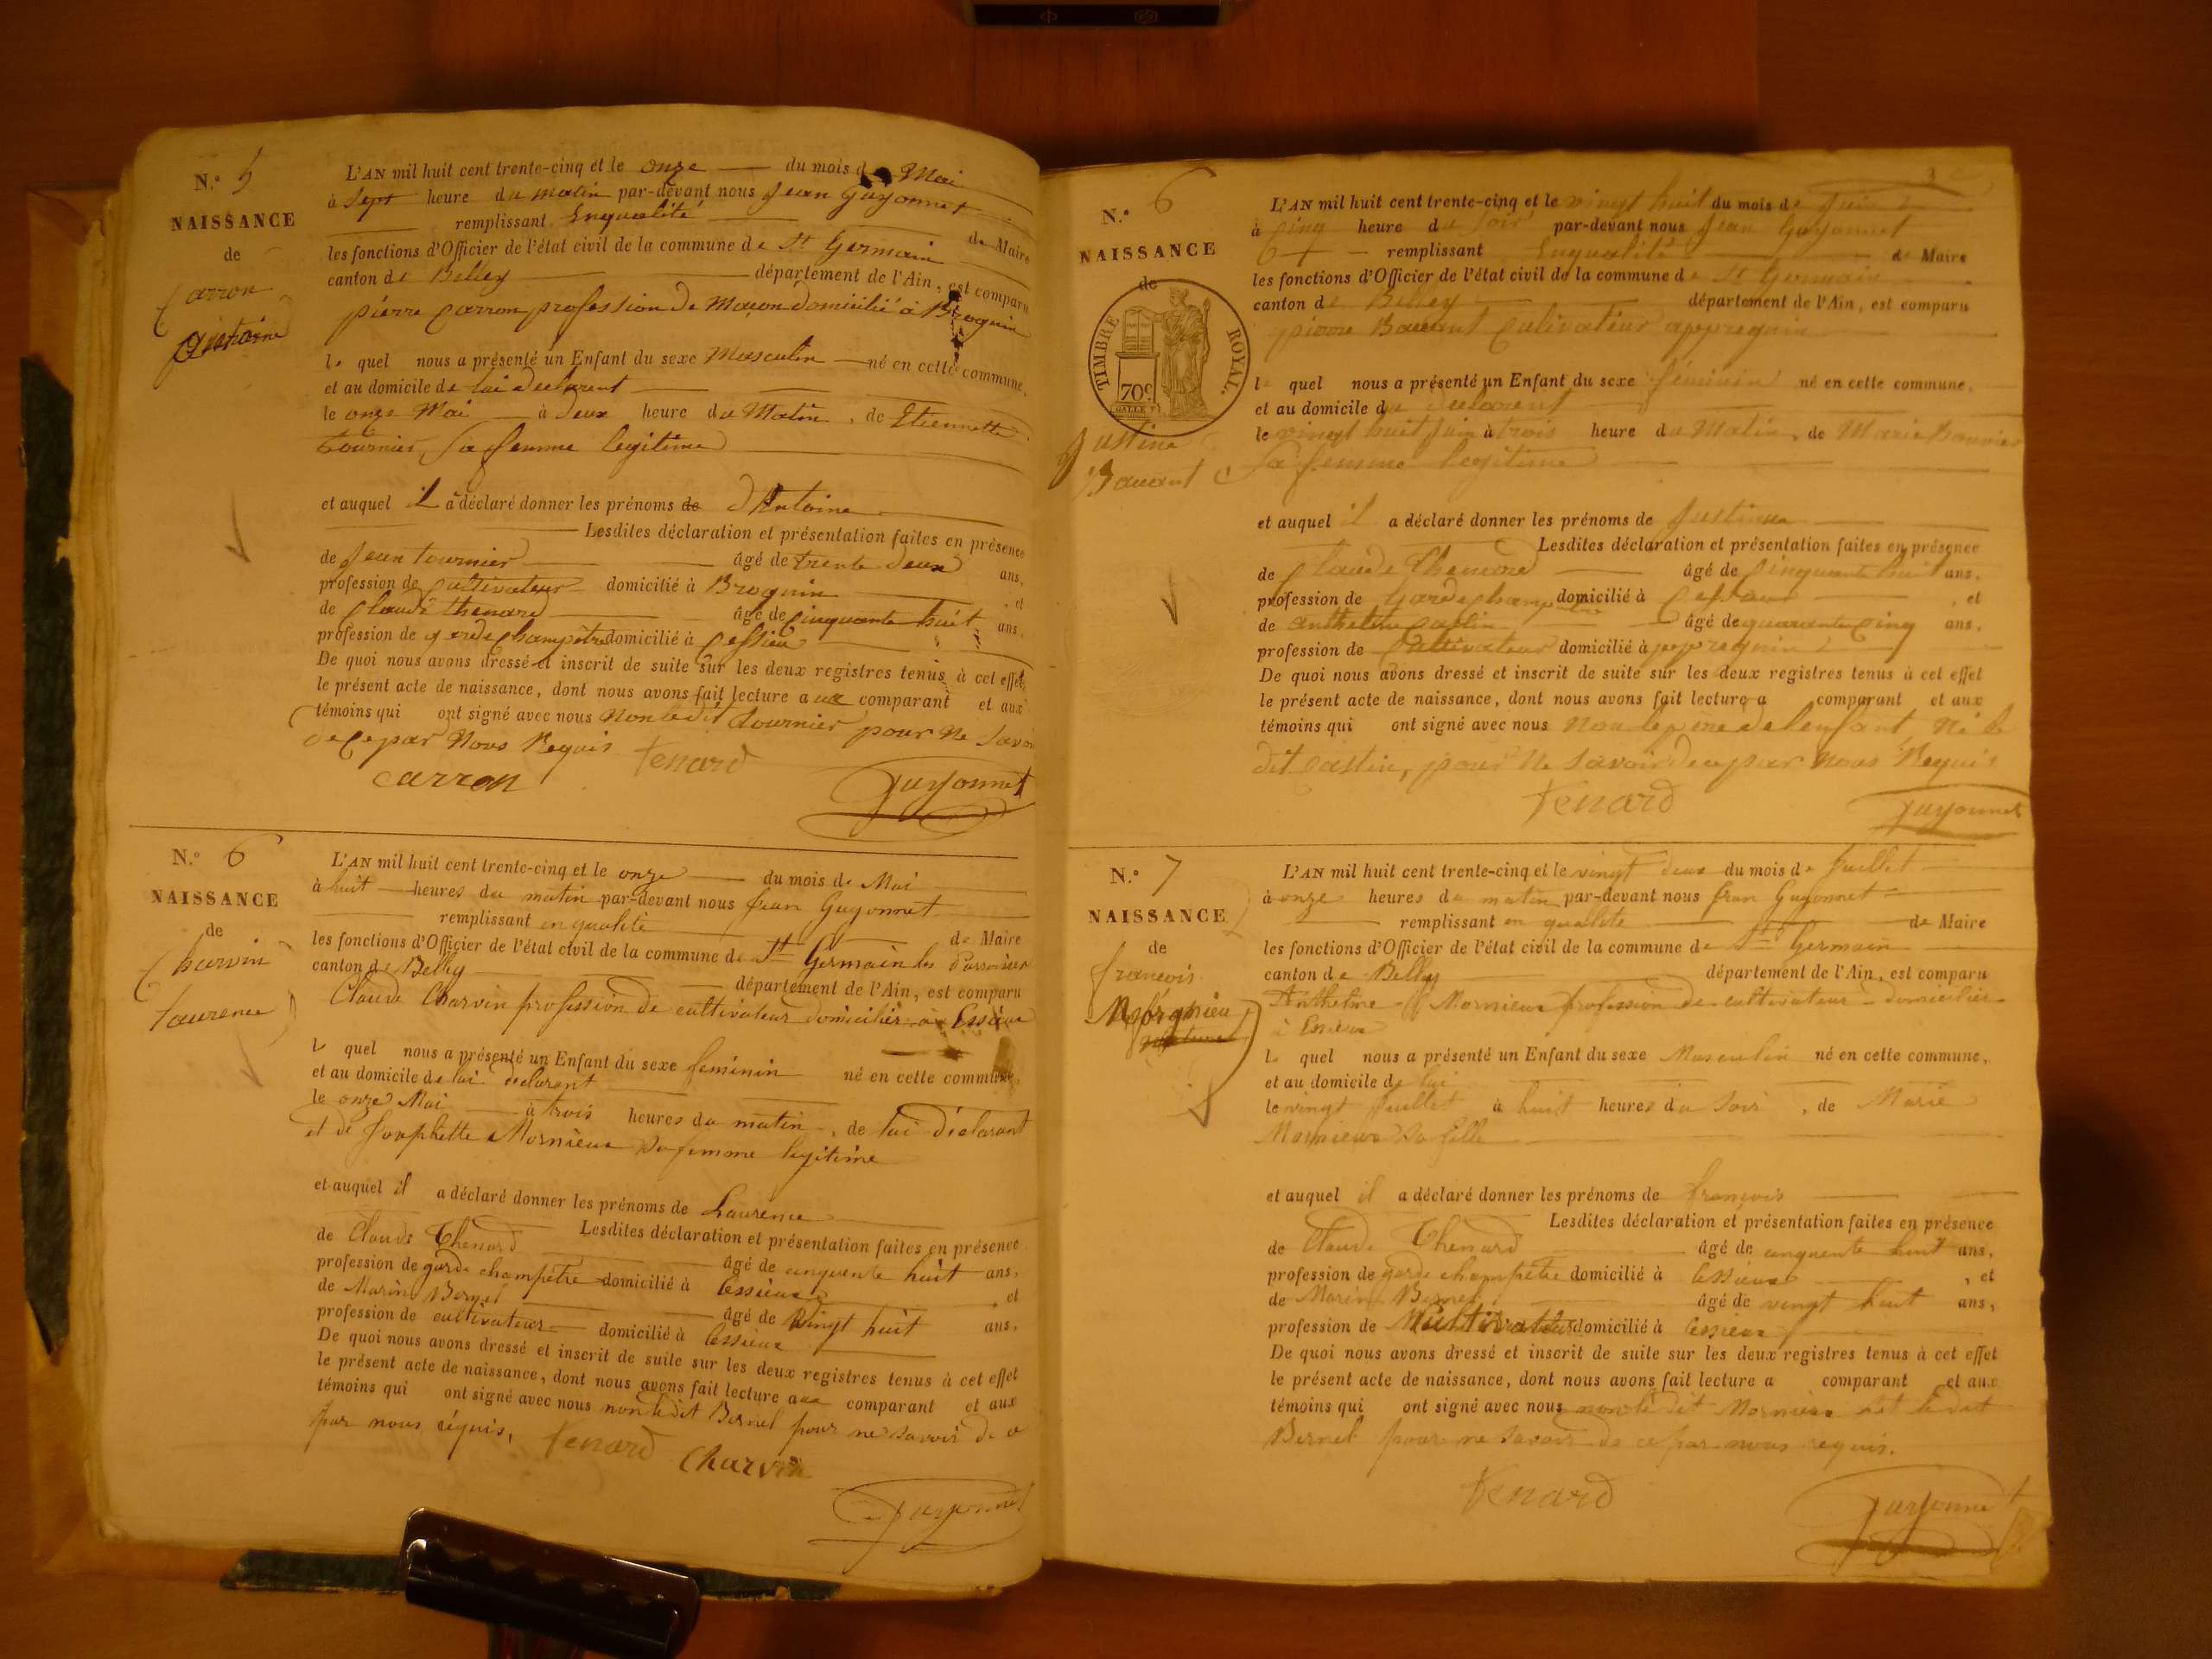 N.° 5
NAISSANCE
de
Carron
Antoine
L'AN mil huit cent trente-cinq et le onze du mois de Mai
à Sept heure du matin par-devant nous Jean Guyonnet
remplissant Enqualité de Maire
les fonctions d'Officier de l'état civil de la commune de St Germain
canton de Belley département de l'Ain, est comparu
pierre Carron profession de Maçon domicilié à Brognin
le quel nous a présenté un Enfant du sexe Masculin né en cette commune,
et au domicile de lui declarent
le onze Mai à deux heure du Matin, de Etiennette
tournier, Sa femme legitime
et auquel il a déclaré donner les prénoms de d'Antoine
Lesdites déclaration et présentation faites en présence
de Jean tournier âgé de trente deux ans,
profession de Cultivateur domicilié à Brognin, et
de Claude thenard âgé de Cinquante huit ans,
profession de garde champêtre domicilié à Cessieu
De quoi nous avons dressé et inscrit de suite sur les deux registres tenus à cet effet
le présent acte de naissance, dont nous avons fait lecture aux comparant et aux
témoins qui ont signé avec nous Non ledit tournier pour ne Savoir
de Ce par Nous Requis tenard
carron Guyonnet
N.° 6
NAISSANCE
de
Charvin
Laurence
L'AN mil huit cent trente-cinq et le onze du mois de Mai
à huit heures du matin par-devant nous Jean Guyonnet
remplissant en qualité de Maire
les fonctions d'Officier de l'état civil de la commune de St Germain les Paroisses
canton de Belley département de l'Ain, est comparu
Claude Charvin profession de cultivateur domicilier à Essieux
le quel nous a présenté un Enfant du sexe feminin né en cette commune,
et au domicile de lui declarant
le onze Mai à trois heures du matin, de lui déclarant
et de Josephette Mornieux sa femme legitime
et auquel il a déclaré donner les prénoms de Laurence
Lesdites déclaration et présentation faites en présence
de Claude Thenard âgé de cinquante huit ans,
profession de garde champêtre domicilié à Cessieux, et
de Marin Bernel âgé de Vingt huit ans,
profession de cultivateur domicilié à Cessieux
De quoi nous avons dressé et inscrit de suite sur les deux registres tenus à cet effet
le présent acte de naissance, dont nous avons fait lecture aux comparant et aux
témoins qui ont signé avec nous non ledit Bernel pour ne savoir de ce
par nous réquis, tenard Charvin
Guyonnet
3
N.° 6
NAISSANCE
de
TIMBRE ROYAL.
70c
Justine
Bavant
L'AN mil huit cent trente-cinq et le vingt huit du mois de Juin
à Cinq heure du soir par-devant nous Jean Guyonnet
remplissant Enqualité de Maire
les fonctions d'Officier de l'état civil de la commune de St Germain
canton de Belley département de l'Ain, est comparu
pierre Bavant Cultivateur appregnin
le quel nous a présenté un Enfant du sexe féminin né en cette commune,
et au domicile du declarent
le vingt huit Juin à trois heure du Matin, de Marie Bouvier
Sa femme legitime
et auquel il a déclaré donner les prénoms de Justine
Lesdites déclaration et présentation faites en présence
de Claude Thenard âgé de Cinquante huit ans,
profession de Garde champetre domicilié à Cessieux, et
de anthelme Castin âgé de quarante Cinq ans,
profession de Cultivateur domicilié à appregnin
De quoi nous avons dressé et inscrit de suite sur les deux registres tenus à cet effet
le présent acte de naissance, dont nous avons fait lecture a comparant et aux
témoins qui ont signé avec nous Non le père de lenfant, Ni le
dit Castin, pour Ne savoir de ce par nous Requis
tenard Guyonnet
N.° 7
NAISSANCE
de
françois
Morgnieu
L'AN mil huit cent trente-cinq et le vingt deux du mois de Juillet
à onze heures du matin par-devant nous Jean Guyonnet
remplissant en qualité de Maire
les fonctions d'Officier de l'état civil de la commune de St Germain
canton de Belley département de l'Ain, est comparu
Anthelme Mornieux profession de cultivateur domicilier
à Essieux
le quel nous a présenté un Enfant du sexe Masculin né en cette commune,
et au domicile de lui
le vingt Juillet à huit heures du soir, de Marie
Mornieux sa fille
et auquel il a déclaré donner les prénoms de françois
Lesdites déclaration et présentation faites en présence
de Claude Thenard âgé de cinquante huit ans,
profession de garde champêtre domicilié à Cessieux, et
de Marin Bernel âgé de vingt huit ans,
profession de Cultivateur domicilié à Cessieux
De quoi nous avons dressé et inscrit de suite sur les deux registres tenus à cet effet
le présent acte de naissance, dont nous avons fait lecture a comparant et aux
témoins qui ont signé avec nous non le dit Mornieux et le dit
Bernel pour ne savoir de ce par nous requis.
tenard
Guyonnet